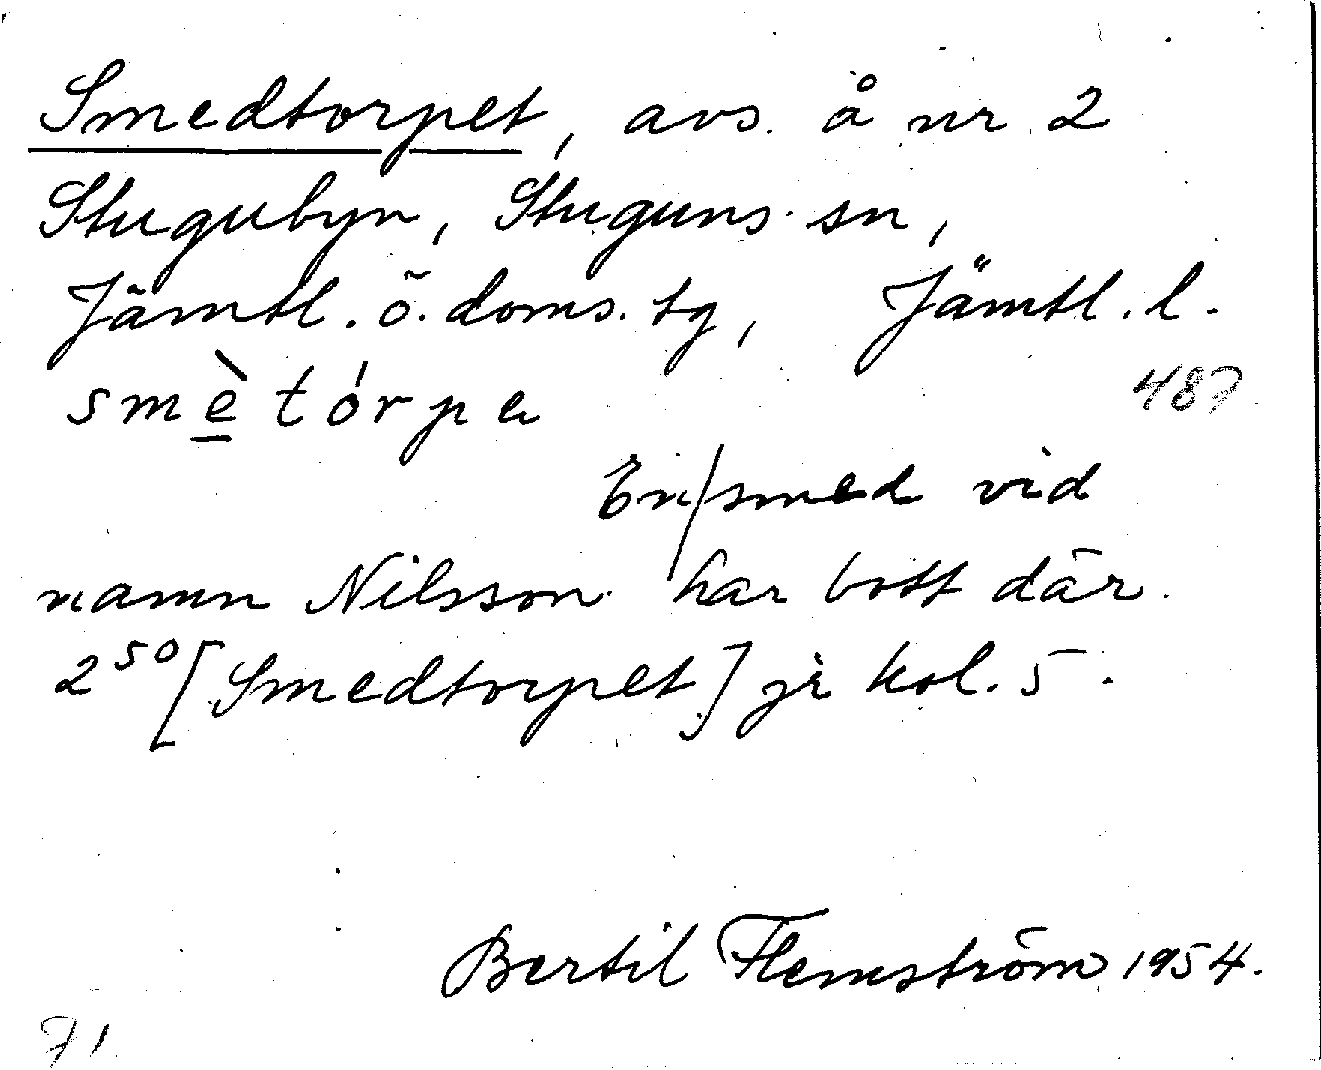 Smedtorpet, avs. å nr 2
Stugubyn, Stuguns sn,
Jämtl. ö. doms. tg, Jämtl. l.
smè̱tórpa 487
En/smed vid
namn Nilsson har bott där.
2⁵⁰ [Smedtorpet] jr kol. 5.
Bertil Flemström 1954.
71